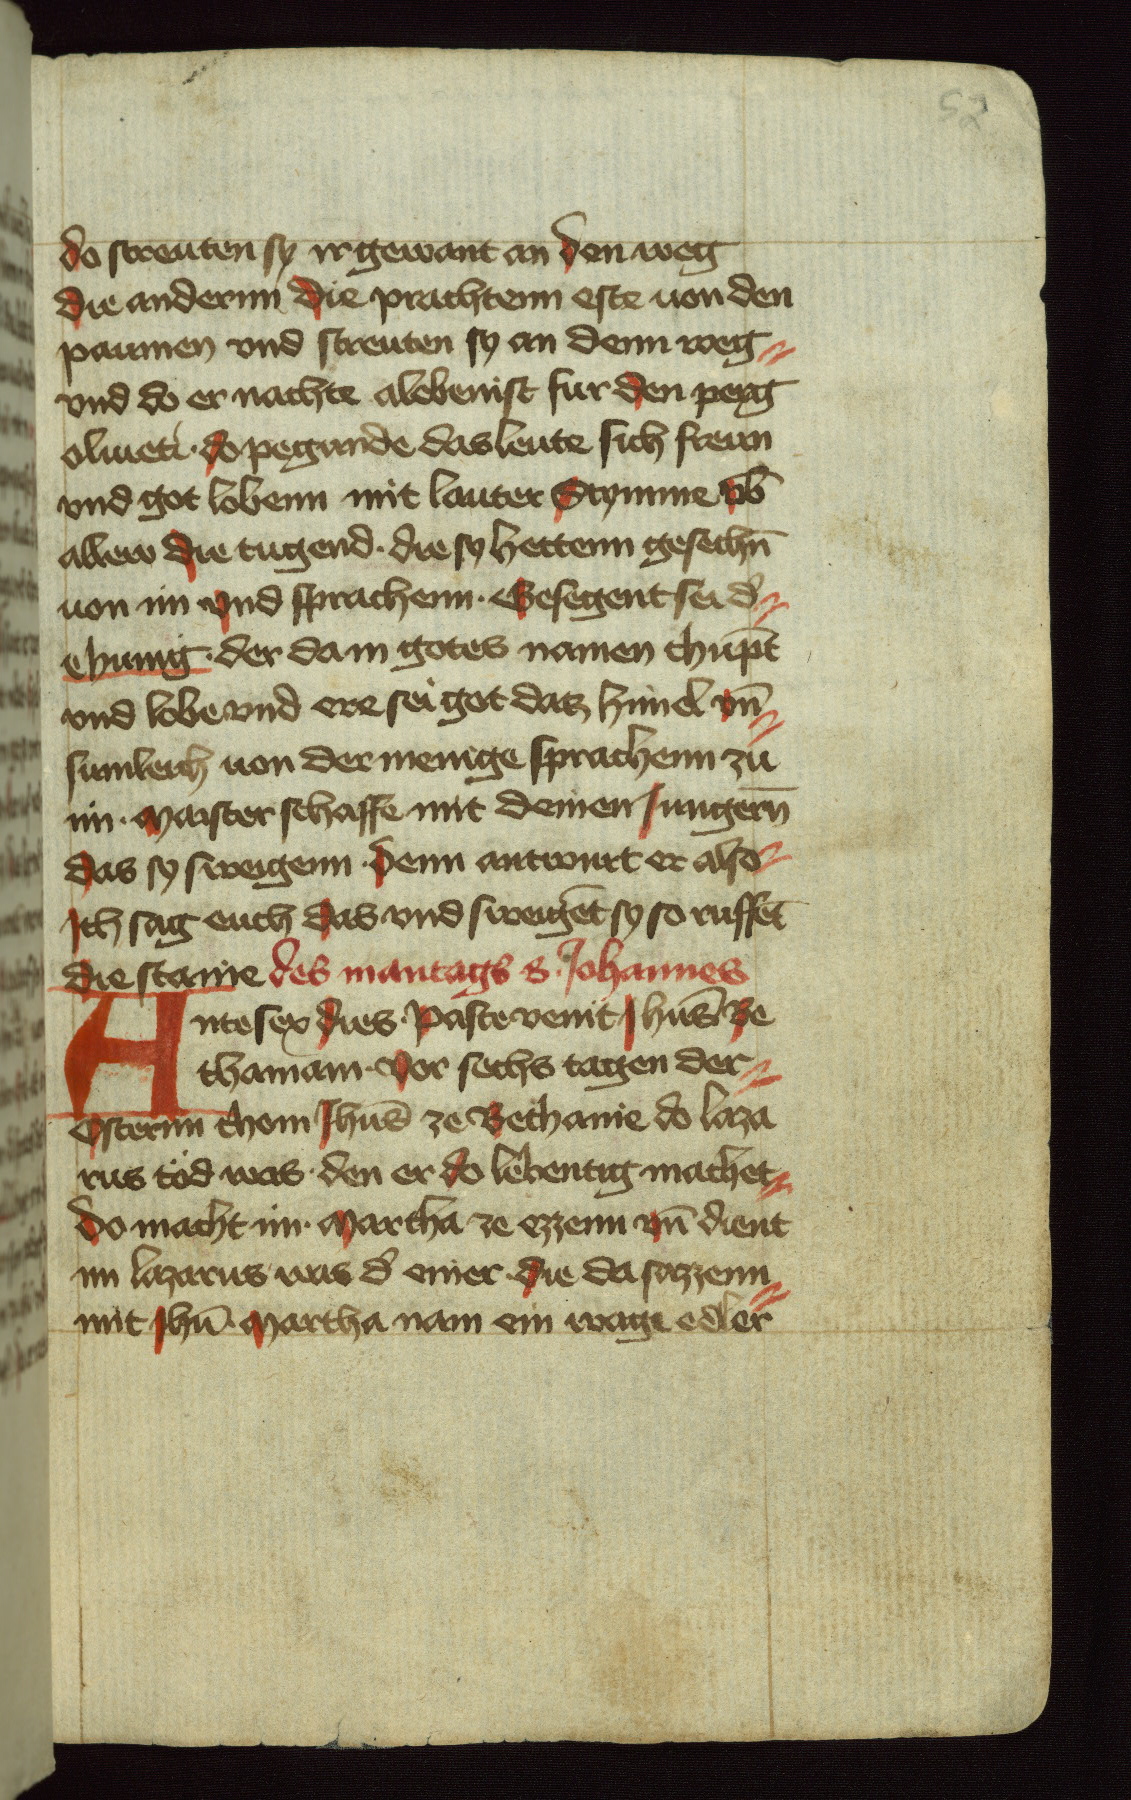 52
do streuten sy ir gewant an den weg
die andernn die prachtenn este uon den
paumen vnd streuten sy an denn weg
vnd do er nachte alebenist fur den perg
oliueti · do pegunde das leute sich frewn
vnd got lobenn mit lauter Stymme vb̄
allew die tugend · die sy hettenn gesechn̄
uon im vnd sprachenn · Gesegent sei d̄
chunig · der da in gotes namen chūpt
vnd lobe vnd ere sei got daz himel vn̄
sumleich uon der menige sprachenn zu
im · Maister schaffe mit deinen Jungern̄
das sy sweigenn · Denn antwurt er also
Ich sag euch das vnd sweigēt sy so ruffēt
die staine des mantags S. Johannes
Ante sex dies · Pasce venit Jhūs Be
thaniam · Vor sechs tagen der
Osternn chom Jhūs ze Bethanie do laza
rus tod was · den er do lebentig machet
do macht im · Martha ze ezzenn vn̄ dient
im lazarus was d̄ einer · die da sazzenn
mit Jhū · Martha nam ein wage edler